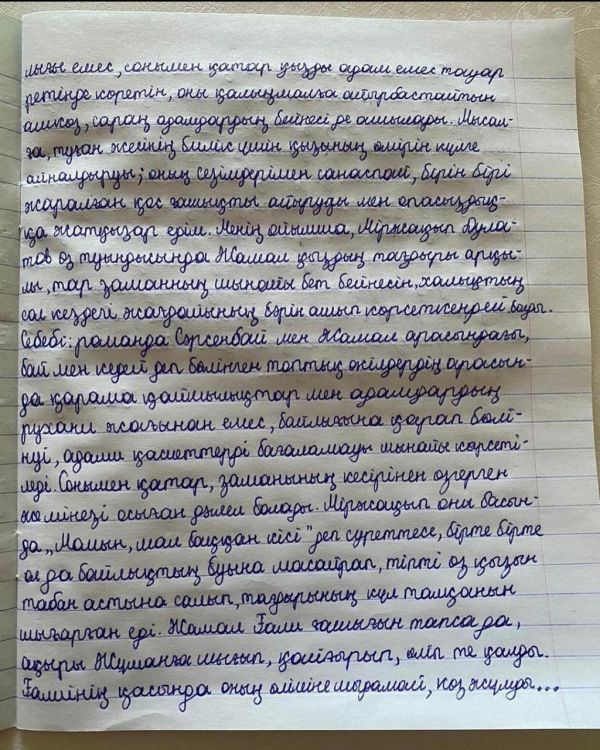 лығы емес, сонымен қатар қызды адам емес тауар
ретінде көретін, оны қалыңмалға айырбастайтын
ашкөз, сараң адамдардың бейнесі де ашылады. Мысал-
ға, туған жеййнің билік үшін қызының өмірін күлге
айналдыруы; оның сезімдерімен санаспай, бірін бірі
жаралған қос ғашықты айыруды мен опасыздық-
қа жатқызар едім. Менің ойымша, Міржақып Дула-
тов өз туындысында Жамал қыздың тағдыры арқы-
лы, тар заманның шынайы бет бейнесін, халықтың
сол кездегі жағдайының бәрін ашып көрсеткендей болды.
Себебі: романда Сәрсенбай мен Жамал арасындағы,
бай мен кедей деп бөлінген топтық өкілдердің арасын-
да қарама қайшылықтар мен адамдардың
рухани жағынан емес, байлығына қарап бөлі-
нуі, адами қасиеттерді бағаламауы шынайы көрсеті-
леді. Сонымен қатар, заманының кесірінен өзгерген
же мінезі осыған дәлел болады. Міржақып оны басын-
да „Момын, мал баққан кісі" деп суреттесе, бірте бірте
ол да байлықтың буына масайрап, тіпті өз қызын
табан астына салып, тағдырының күл талқанын
шығарған еді. Жамал Ғали ғашығын тапса да,
ақыры Жұманға шығып, қайғырып, өліп те қалды.
Ғалидің қасында оның өліміне шыдамай, көз жұмды...